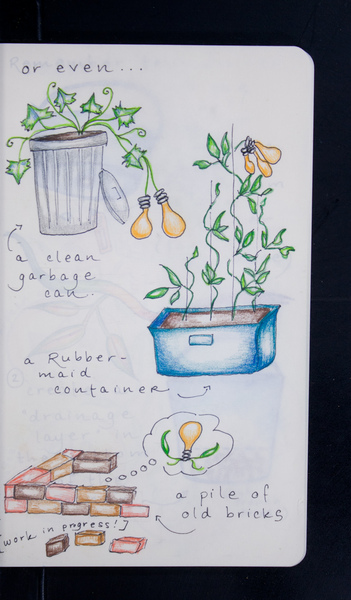 or even...
a clean
garbage
can.
a Rubber-
maid
container
a pile of
old bricks
[work in progress!]